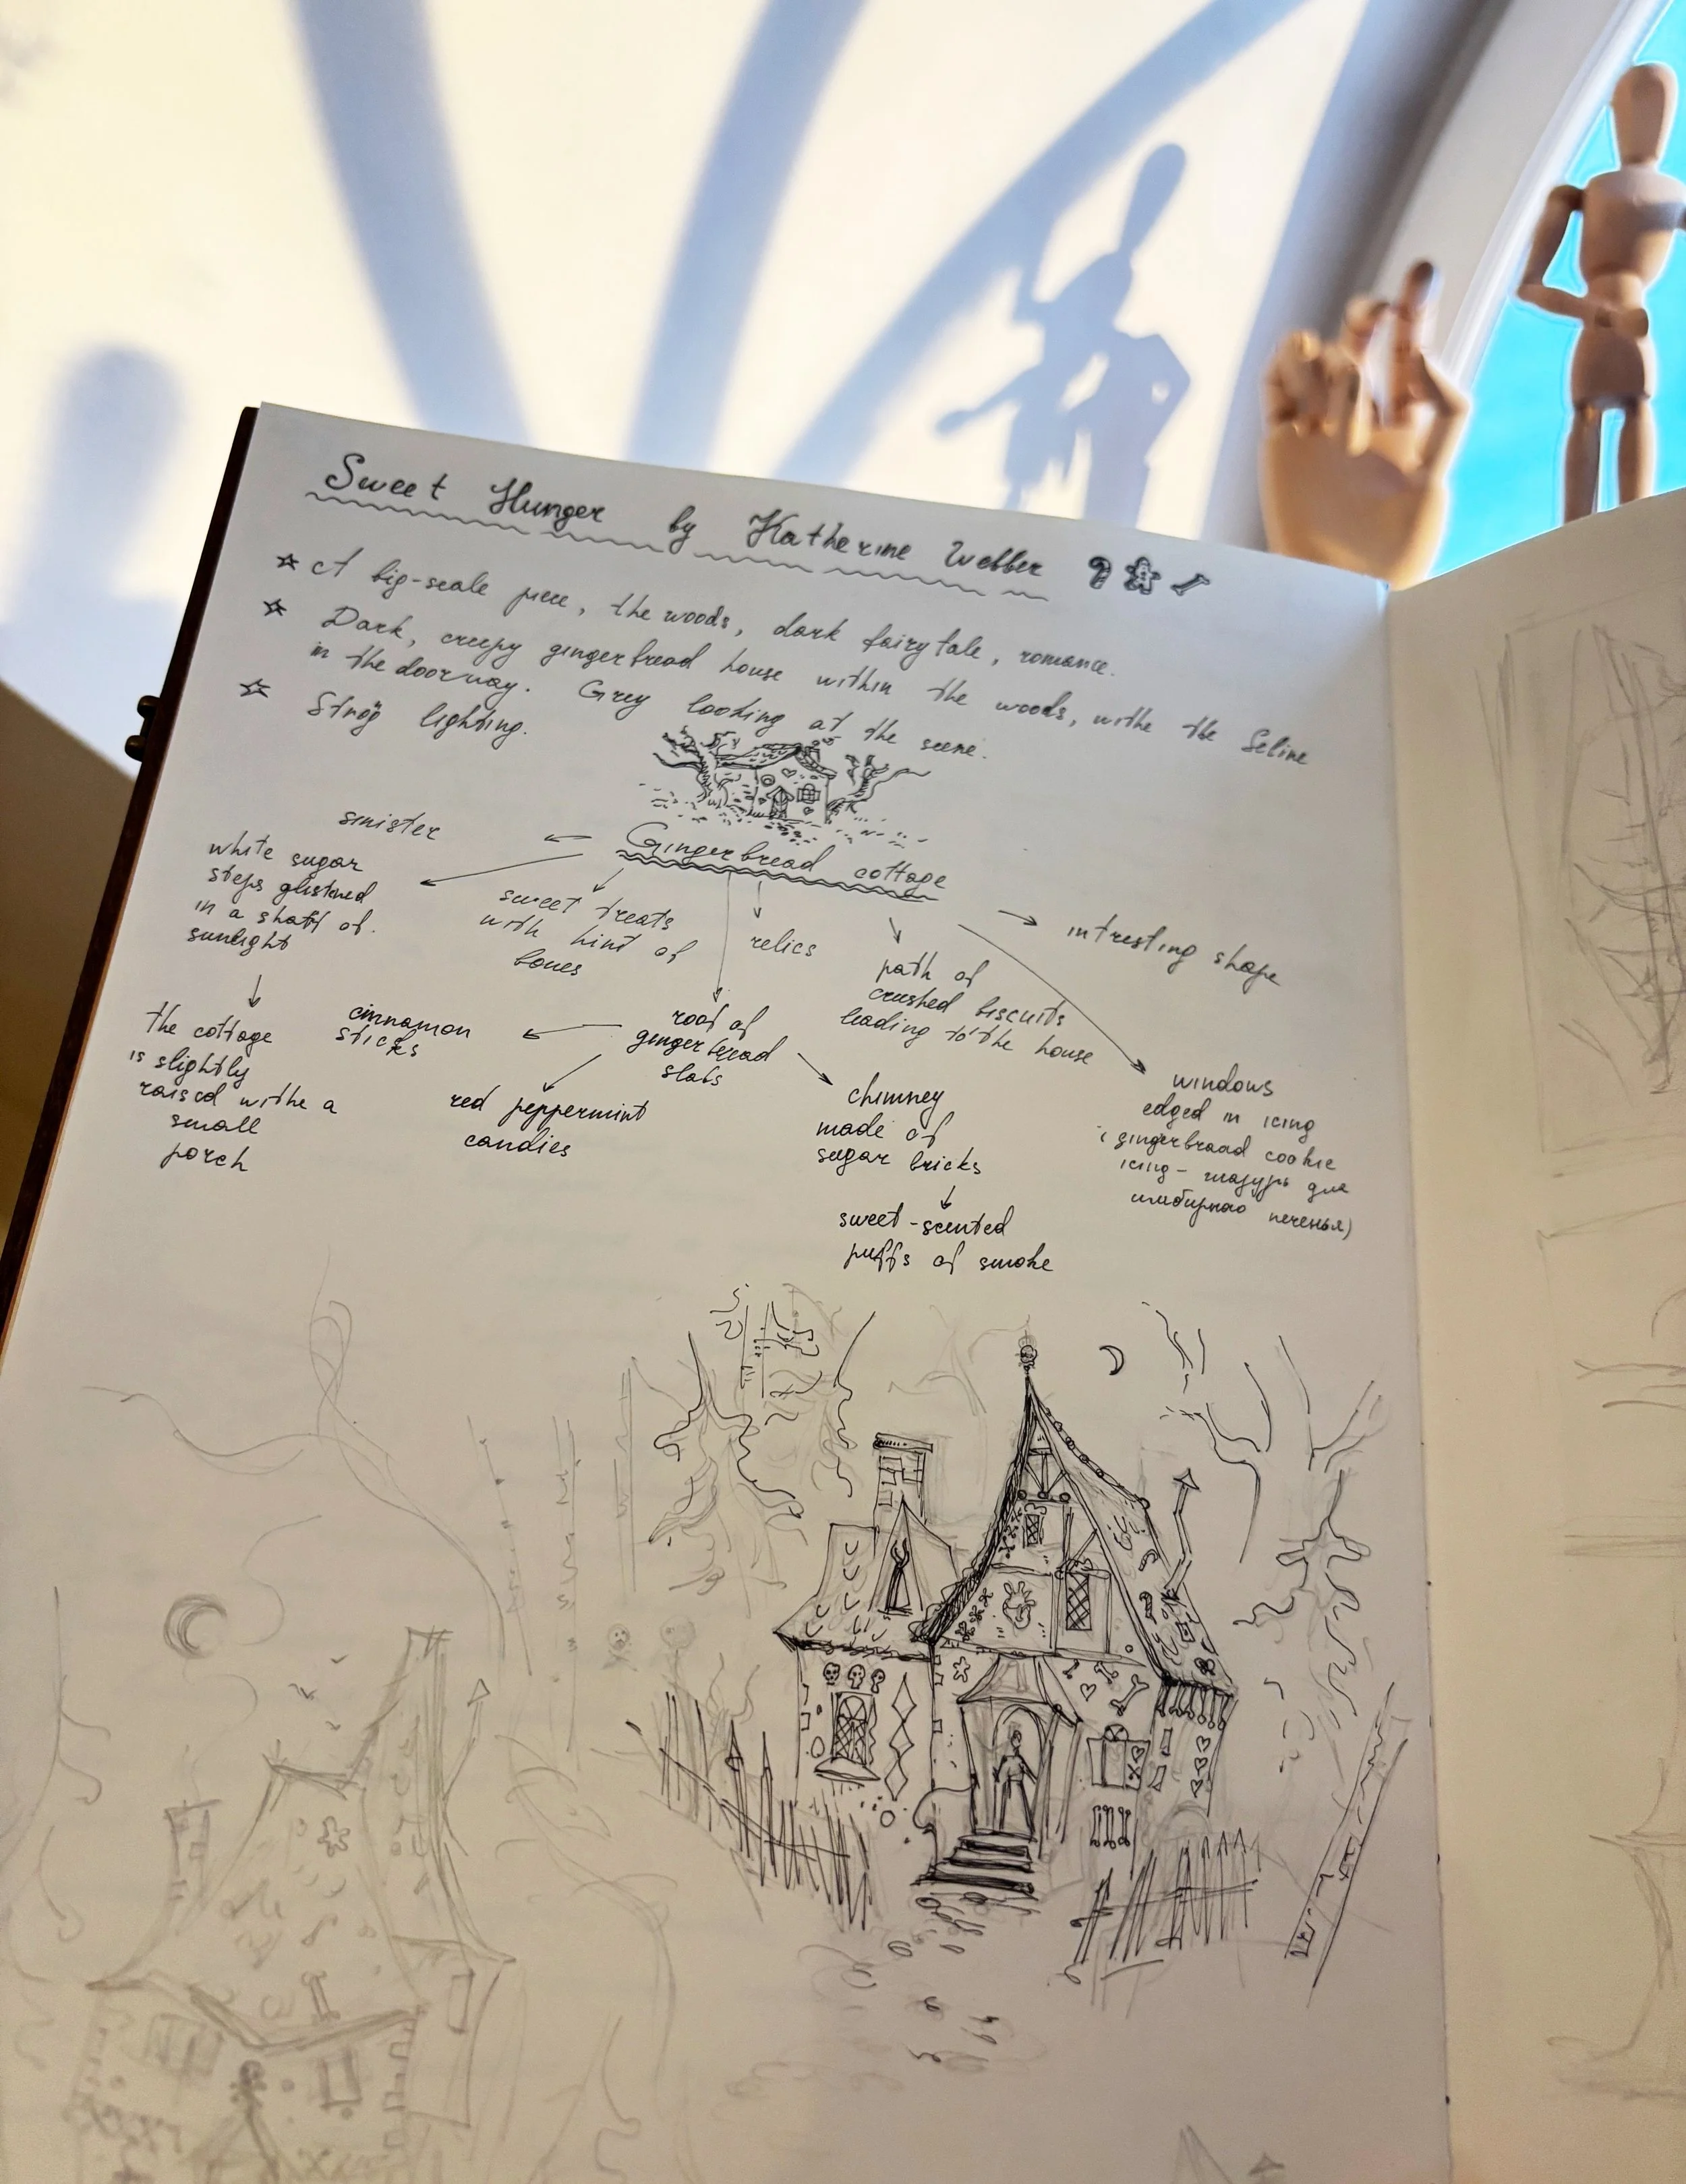 Sweet Hunger by Katherine Webber
A big-scale piece, the woods, dark fairy tale, romance.
Dark, creepy gingerbread house within the woods, withe the Seline
in the doorway. Grey looking at the scene.
Strog lighting.
Gingerbread cottage
sinister
white sugar
steps glistened
in a shaft of
sunlight
the cottage
is slightly
raised withe a
small
porch
sweet treats
with hint of
bones
relics
roof of
gingerbread
slabs
cinnamon
sticks
red peppermint
candies
chimney
made of
sugar bricks
sweet-scented
puffs of smoke
path of
crushed biscuits
leading to the house
intresting shape
windows
edged in icing
(gingerbraad cookie
icing - глазурь для
имбирного печенья)